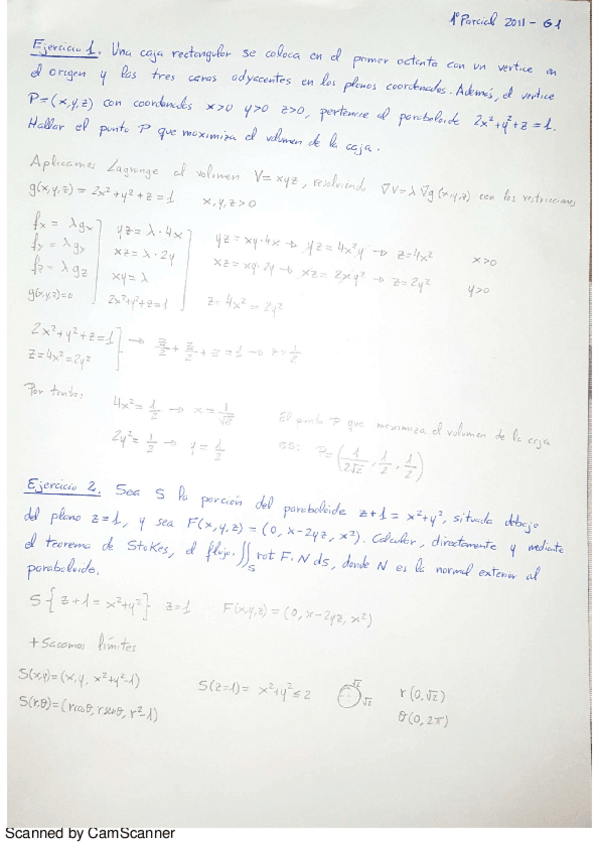 1º Parcial 2011 - G1
Ejercicio 1. Una caja rectangular se coloca en el primer octante con un vertice en
el origen y las tres caras adyacentes en los planos coordenados. Además, el vertice
P=(x,y,z) con coordenadas x>0 y>0 z>0, pertenece al paraboloide 2x²+y²+z=1.
Hallar el punto P que maximiza el volumen de la caja.
Aplicamos Lagrange al volumen V=xyz, resolviendo ∇V=λ∇g(x,y,z) con las restricciones
g(x,y,z)=2x²+y²+z=1 x,y,z>0
fx = λgx yz=λ·4x yz=xy·4x → yz=4x²y → z=4x² x>0
fy = λgy xz=λ·2y xz=xy·2y → xz=2xy² → z=2y² y>0
fz = λgz xy=λ
g(x,y,z)=0 2x²+y²+z=1 z=4x²=2y²
2x²+y²+z=1
z=4x²=2y² → z/2 + z/2 + z = 1 → z=1/2
Por tanto:
4x²=1/2 → x=1/√2 El punto P que maximiza el volumen de la caja
2y²=1/2 → y=1/2 es: P=(1/2√2, 1/2, 1/2)
Ejercicio 2. Sea S la porción del paraboloide z+1=x²+y², situada debajo
del plano z=1, y sea F(x,y,z)=(0, x-2yz, x²). Calcular, directamente y mediante
el teorema de Stokes, el flujo ∬S rot F·N ds, donde N es la normal exterior al
paraboloide.
S{z+1=x²+y²} z=1 F(x,y,z)=(0, x-2yz, x²)
+ Sacamos límites
S(x,y)=(x,y, x²+y²-1) S(z=1)= x²+y²≤2 √2 √2 r(0,√2)
S(r,θ)=(rcosθ, rsenθ, r²-1) θ(0,2π)
Scanned by CamScanner